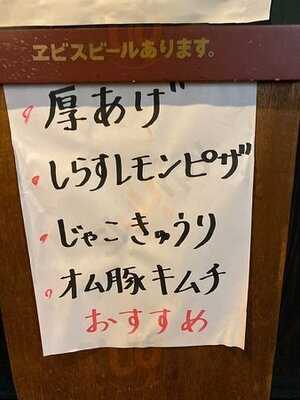 ヱビスビールあります。
厚あげ
しらすレモンピザ
じゃこきゅうり
オム豚キムチ
おすすめ